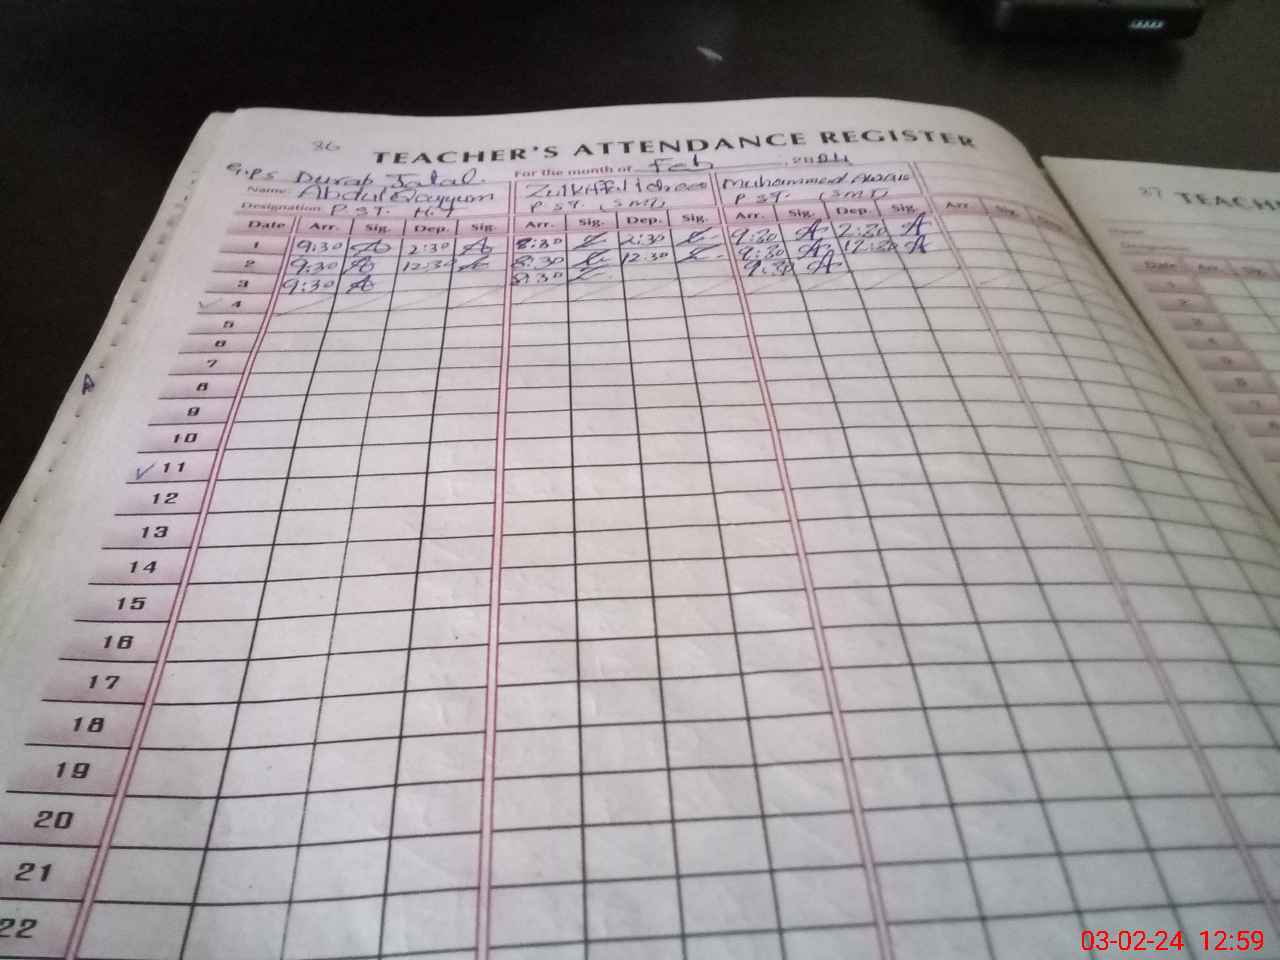 36
TEACHER'S ATTENDANCE REGISTER
G.P.S Durab Jalal. For the month of Feb, 2024
Name: Abdul Qayyum Muhammad
Designation: P ST. P ST. (SMT) P ST. (SMT)
Date Arr. Sig. Dep. Sig. Arr. Sig. Dep. Sig. Arr. Sig. Dep. Sig. Arr. Sig.
1 9:30 2:30 8:30 2:30 9:30 2:30
2 9:30 12:30 8:30 12:30 9:30 12:30
3 9:30 8:30 9:30
4
5
6
7
8
9
10
11
12
13
14
15
16
17
18
19
20
21
22
37
TEACH
Date Arr. Sig.
03-02-24 12:59